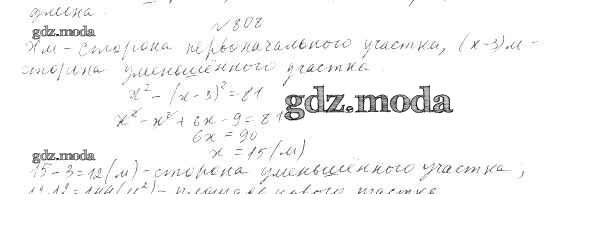 № 808
gdz.moda
x м - сторона первоначального участка, (x-3) м -
сторона уменьшённого участка.
x² - (x-3)² = 81
gdz.moda
x² - x² + 6x - 9 = 81
6x = 90
x = 15 (м)
gdz.moda
15 - 3 = 12 (м) - сторона уменьшённого участка;
12·12 = 144 (м²) - площадь нового участка